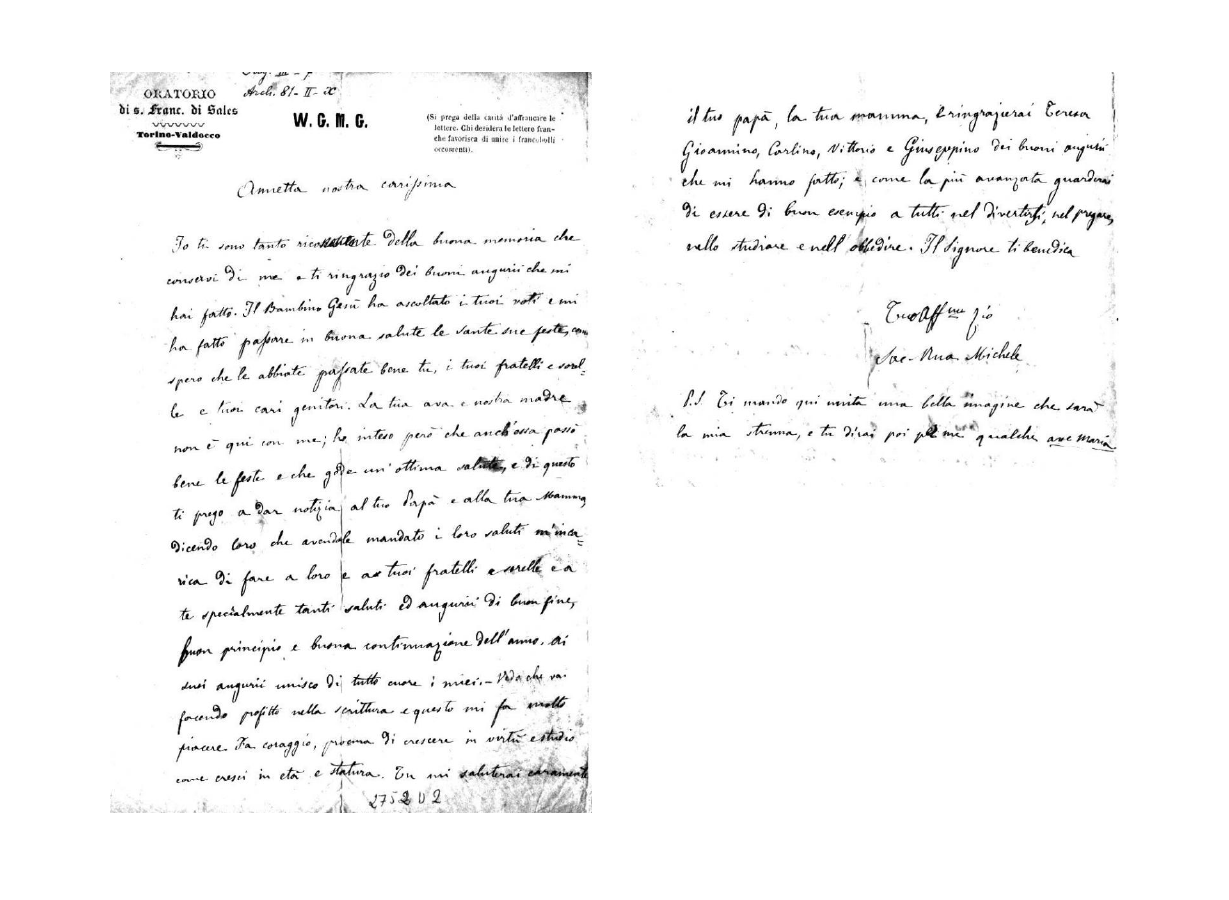 Arch. 81-II-IX
ORATORIO
di s. Franc. di Sales
Torino-Valdocco
W. G. M. G.
(Si prega della carità d'affrancare le
lettere. Chi desidera le lettere fran-
che favorisca di unire i francobolli
occorrenti).
Annetta nostra carissima
Io ti sono tanto riconoscente della buona memoria che
conservi di me e ti ringrazio dei buoni augurii che mi
hai fatto. Il Bambino Gesù ha ascoltato i tuoi voti e mi
ha fatto passare in buona salute le sante sue feste, come
spero che le abbiate passate bene tu, i tuoi fratelli e sorel-
le e tuoi cari genitori. La tua ava e nostra madre
non è qui con me; ho inteso però che anch'essa passò
bene le feste e che gode un'ottima salute, e di questo
ti prego a dar notizia al tuo Papà e alla tua Mamma,
dicendo loro che avendole mandato i loro saluti m'inca-
rica di fare a loro e ai tuoi fratelli e sorelle e a
te specialmente tanti saluti ed augurii di buon fine,
buon principio e buona continuazione dell'anno. Ai
suoi augurii unisco di tutto cuore i miei. - Vedo che vai
facendo profitto nella scrittura e questo mi fa molto
piacere. Fa coraggio, procura di crescere in virtù e studio
come cresci in età e statura. Tu mi saluterai caramente
275202
il tuo papà, la tua mamma, e ringrazierai Teresa
Gioannino, Carlino, Vittorio e Giuseppino dei buoni augurii
che mi hanno fatto; e come la più avanzata guarderai
di essere di buon esempio a tutti nel divertirsi, nel pregare,
nello studiare e nell'obbedire. Il Signore ti benedica
Tuo Aff.mo Zio
Sac. Rua Michele
P.S. Ti mando qui unita una bella imagine che sarà
la mia strenna, e tu dirai poi per me qualche ave Maria